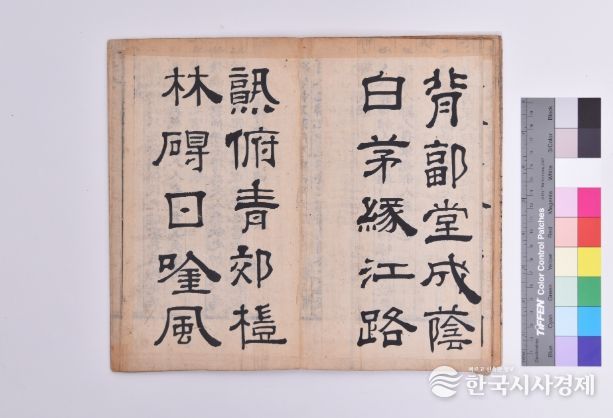 背郭堂成蔭
白茅緣江路
熟俯青郊榿
林碍日唫風
TIFFEN Color Control Patches
Black
3/Color
White
Magenta
Red
Yellow
Green
Cyan
Blue
한국시사경제